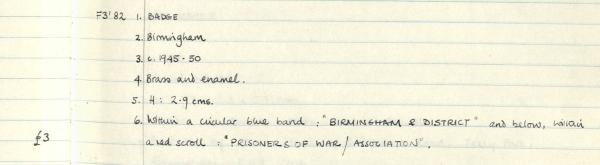 F3'82 1. BADGE
2. Birmingham
3. c. 1945-50
4. Brass and enamel.
5. H: 2.9 cms.
6. Within a circular blue band: "BIRMINGHAM & DISTRICT" and below, within
£3 a red scroll: "PRISONERS OF WAR / ASSOCIATION".